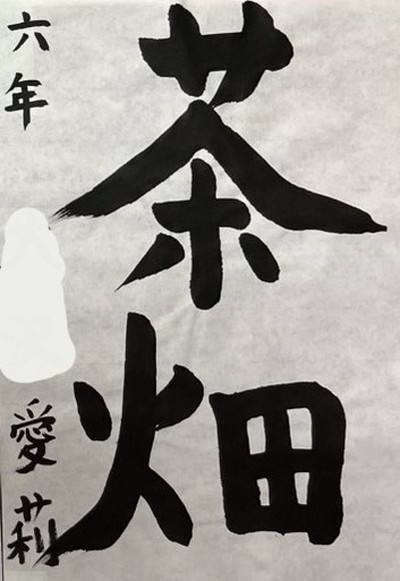 茶畑
六年 愛莉